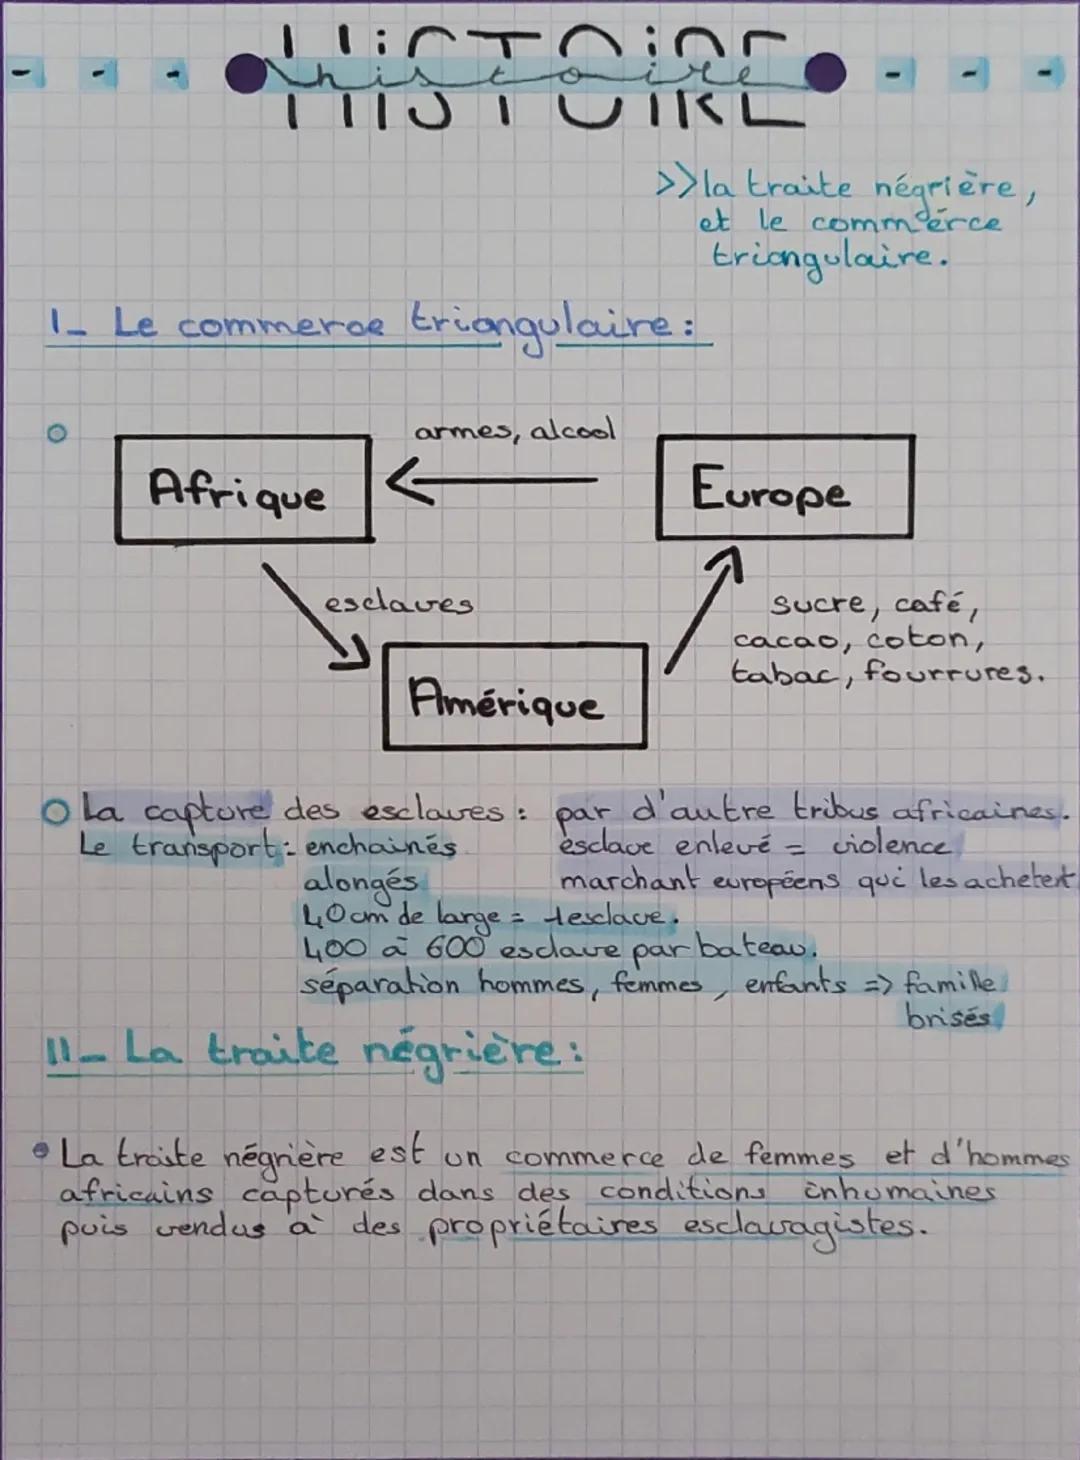 HISTOIRE
histoire
>>la traite négrière,
et le commerce
triangulaire.
I- Le commerce triangulaire:
armes, alcool
Afrique
Europe
esclaves
sucre, café,
cacao, coton,
tabac, fourrures.
Amérique
La capture des esclaves : par d'autre tribus africaines.
esclave enlevé = violence
marchant européens qui les achetent
Le transport : enchainés
alongés
40cm de large = 1 esclave.
400 à 600 esclave par bateau.
séparation hommes, femmes, enfants => famille
brisés
II- La traite négrière:
La traite négrière est un commerce de femmes et d'hommes
africains capturés dans des conditions inhumaines
puis vendus à des propriétaires esclavagistes.